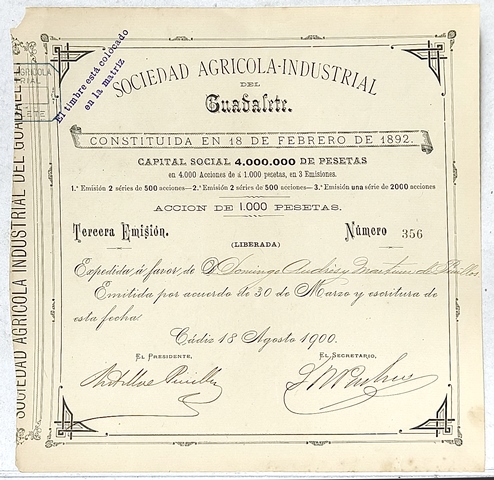 El timbre está colocado
en la matriz
SOCIEDAD AGRÍCOLA-INDUSTRIAL
DEL
Guadalete.
CONSTITUIDA EN 18 DE FEBRERO DE 1892.
CAPITAL SOCIAL 4.000.000 DE PESETAS
en 4.000 Acciones de á 1.000 pesetas, en 3 Emisiones.
1.ª Emisión 2 séries de 500 acciones—2.ª Emisión 2 séries de 500 acciones—3.ª Emisión una série de 2000 acciones
ACCION DE 1.000 PESETAS.
Tercera Emisión. Número 356
(LIBERADA)
Expedida á favor de D. Domingo Andrés y Martinez de Pinillos
Emitida por acuerdo de 30 de Marzo y escritura de
esta fecha.
Cádiz 18 Agosto 1900.
EL PRESIDENTE, EL SECRETARIO,
SOCIEDAD AGRÍCOLA INDUSTRIAL DEL GUADALETE